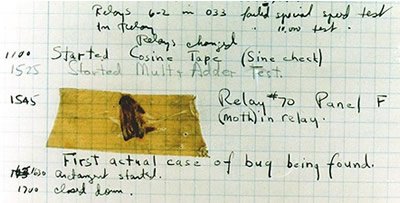 Relays 6-2 in 033 failed special speed test
in Relay " 10,000 test.
Relays changed
1100 Started Cosine Tape (Sine check)
1525 Started Mult+Adder Test.
1545 Relay #70 Panel F
(Moth) in relay.
First actual case of bug being found.
1630 antangent started.
1700 closed down.